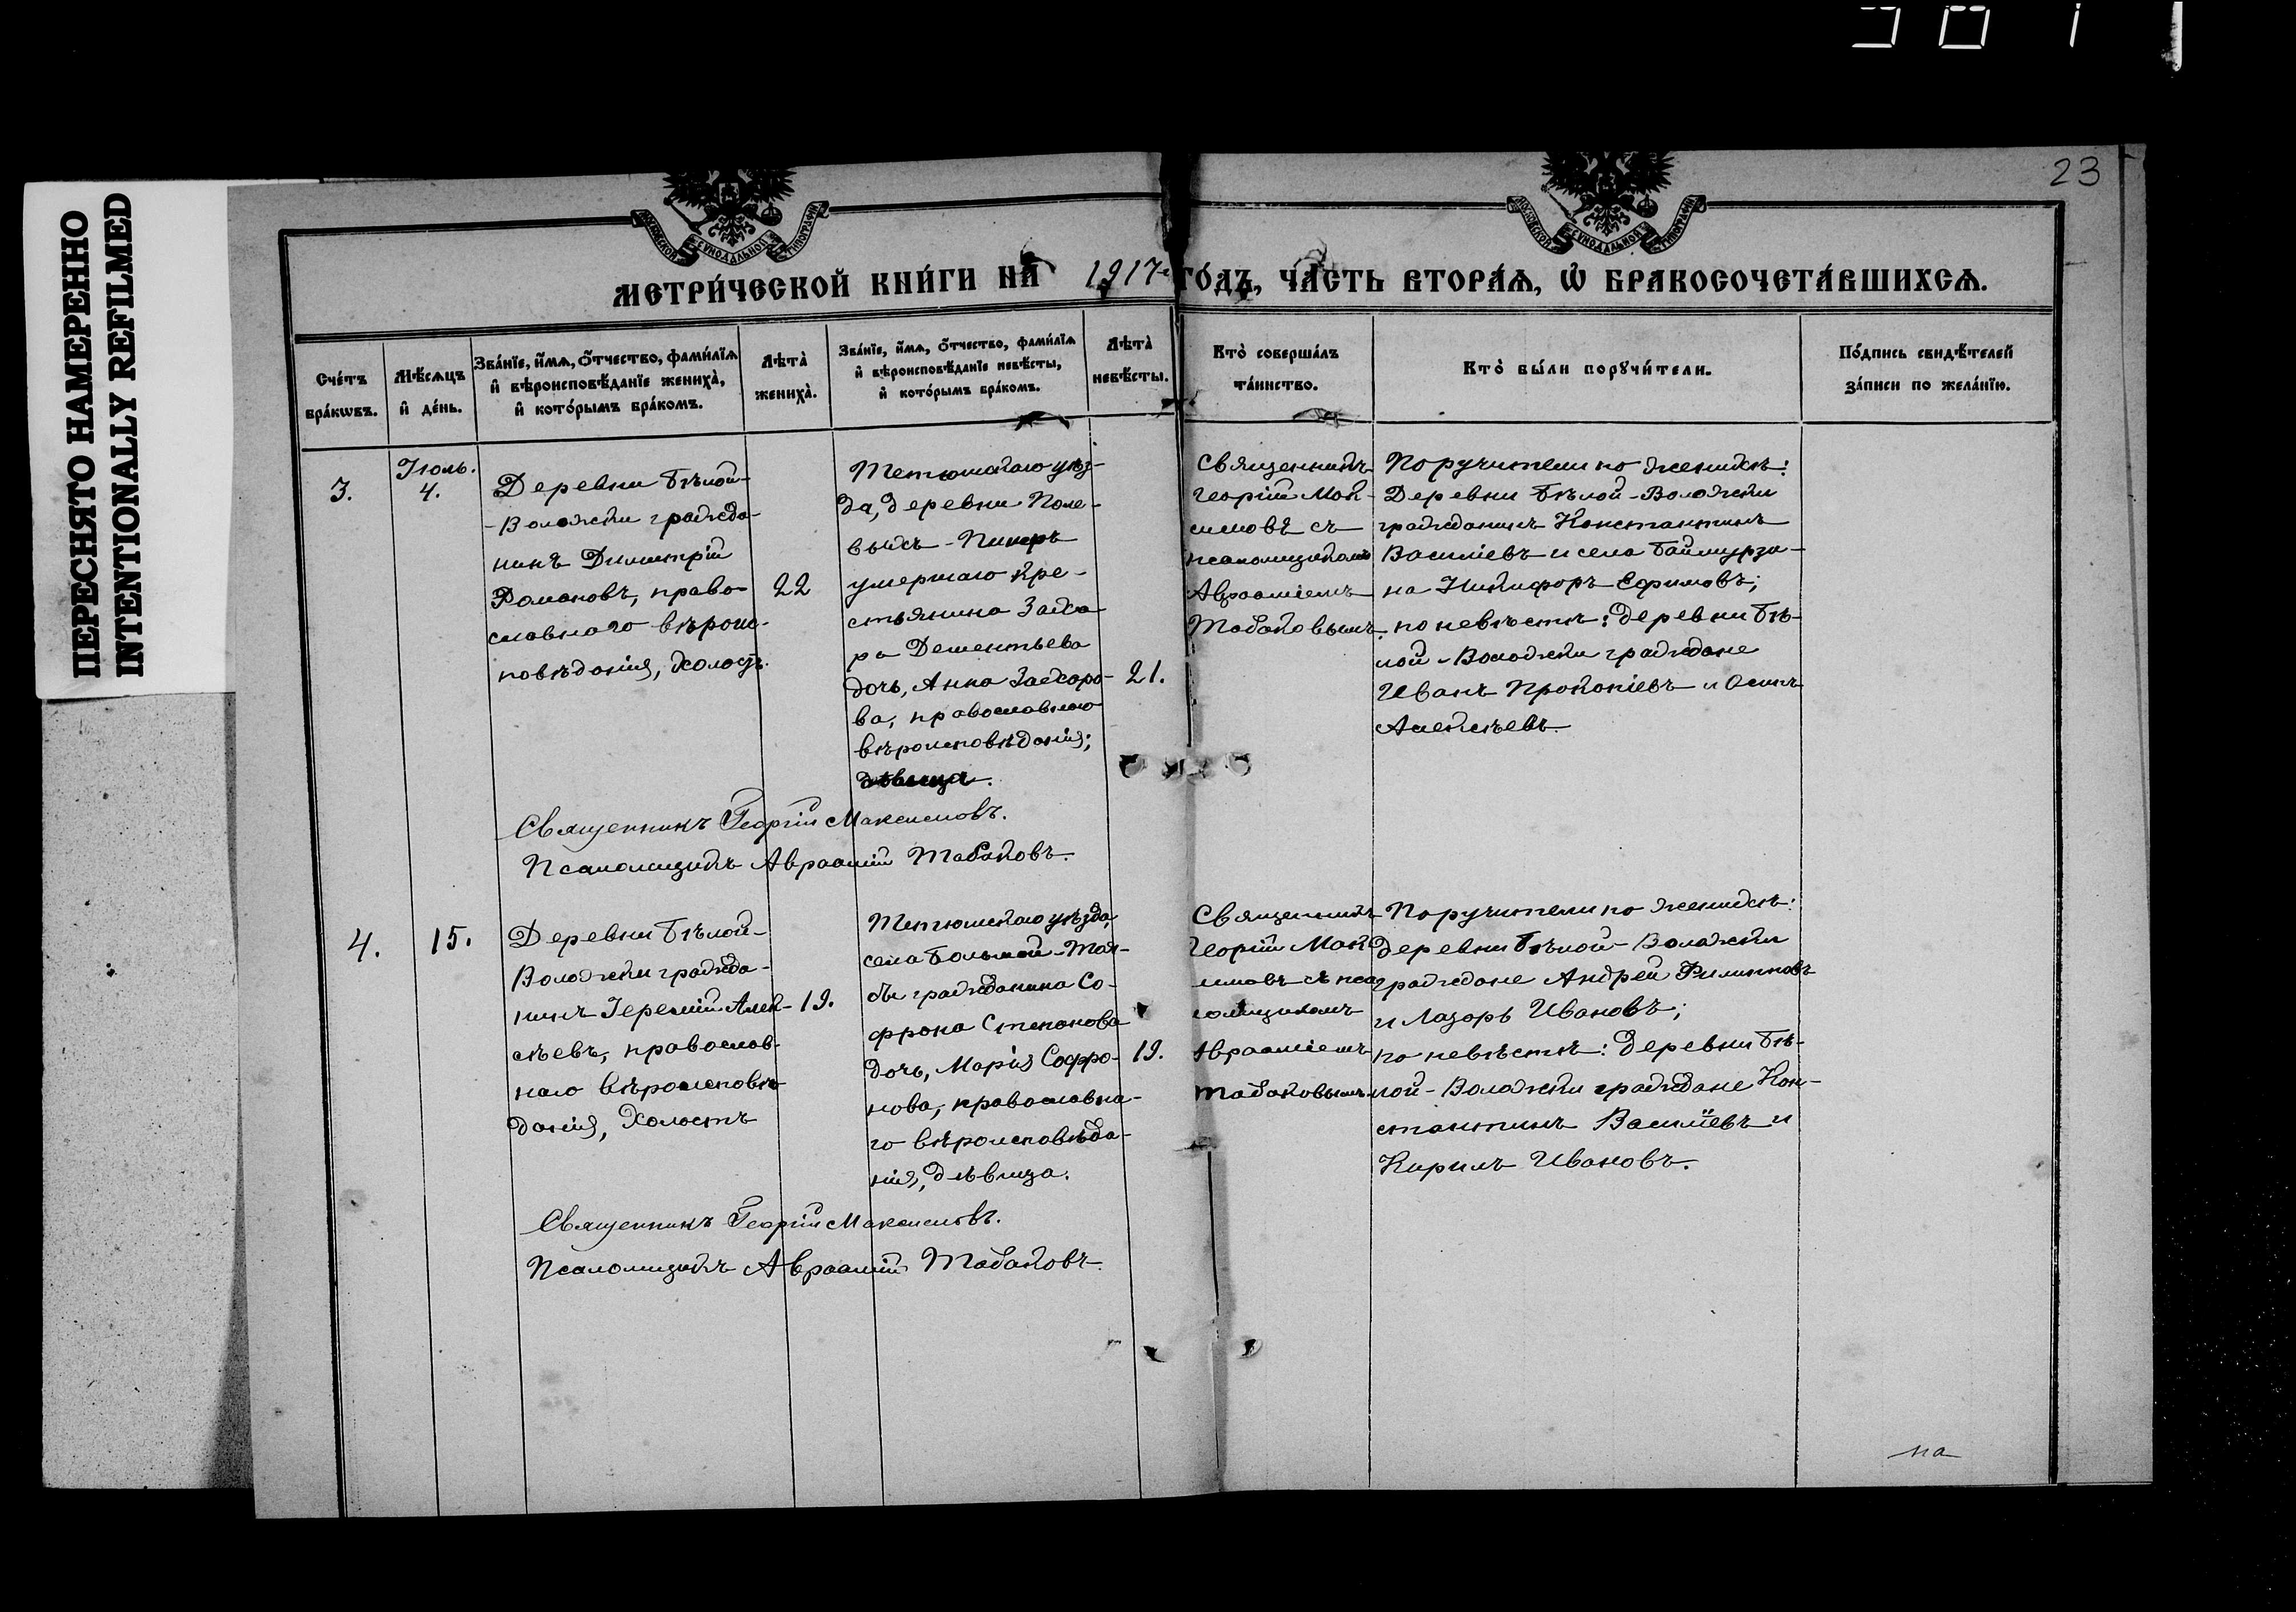 ПЕРЕСНЯТО НАМЕРЕННО
INTENTIONALLY REFILMED
23
МОСКОВСКОЙ СУНОДАЛЬНОЙ ТИПОГРАФІИ
МОСКОВСКОЙ СУНОДАЛЬНОЙ ТИПОГРАФІИ
МЕТРИ́ЧЕСКОЙ КНИ́ГИ НА 1917 ГО́ДЪ, ЧА́СТЬ ВТОРА́Ѧ, Ѡ БРАКОСОЧЕТА́ВШИХСѦ.
Сче́тъ
бра́кѡвъ.
Мѣ́сѧцъ
и҆ де́нь.
Зва́нїе, и҆́мѧ, ѻ҆́тчество, фами́лїѧ
и҆ вѣроисповѣ́данїе жениха̀,
и҆ кото́рымъ бра́комъ.
Лѣта̀
жениха̀.
Зва́нїе, и҆́мѧ, ѻ҆́тчество, фами́лїѧ
и҆ вѣроисповѣ́данїе невѣ́сты,
и҆ кото́рымъ бра́комъ.
Лѣта̀
невѣ́сты.
Кто̀ соверша́лъ
та́инство.
Кто̀ бы́ли порꙋчи́тели.
По́дпись свидѣ́телей
за́писи по жела́нїю.
3.
Іюль.
4.
Деревни Бѣлой-
-Воложки гражда-
нинъ Димитрій
Романовъ, право-
славнаго вѣроис-
повѣданія, холостъ.
22
Тетюшскаго уѣз-
да, деревни Поле-
выхъ-
умершаго кре-
стьянина Заха-
ра Дементьева
дочь, Анна Захаро-
ва, православнаго
вѣроисповѣданія;
дѣвица.
21.
Священникъ
Георгій Мак-
симовъ съ
псаломщикомъ
Авраамiемъ
Табаковымъ.
Поручители по женихѣ:
Деревни Бѣлой-Воложки
гражданинъ Константинъ
Василіевъ и села Баймурзи-
на Никифоръ Ефимовъ;
по невѣстѣ: деревни Бѣ-
лой-Воложки граждане
Иванъ Прокопіевъ и Осипъ
Алексѣевъ.
Священникъ Георгій Максимовъ.
Псаломщикъ Авраамій Табаковъ.
4.
15.
Деревни Бѣлой-
Воложки гражда-
нинъ Іеремій Алек-
сѣевъ, православ-
наго вѣроисповѣ-
данія, холостъ
19.
Тетюшскаго уѣзда,
села Большой-Тая-
бы гражданина Со-
фрона Степанова
дочь, Марія Софро-
нова, православна-
го вѣроисповѣда-
нія, дѣвица.
19.
Священникъ
Георгій Мак
симовъ съ пса
ломщикомъ
Авраамiемъ
Табаковымъ.
Поручители по женихѣ:
деревни Бѣлой-Воложки
граждане Андрей Филипповъ
и Лазарь Ивановъ;
по невѣстѣ: деревни Бѣ-
лой-Воложки граждане Кон-
стантинъ Василіевъ и
Кирилъ Ивановъ.
Священникъ Георгій Максимовъ.
Псаломщикъ Авраамій Табаковъ.
на